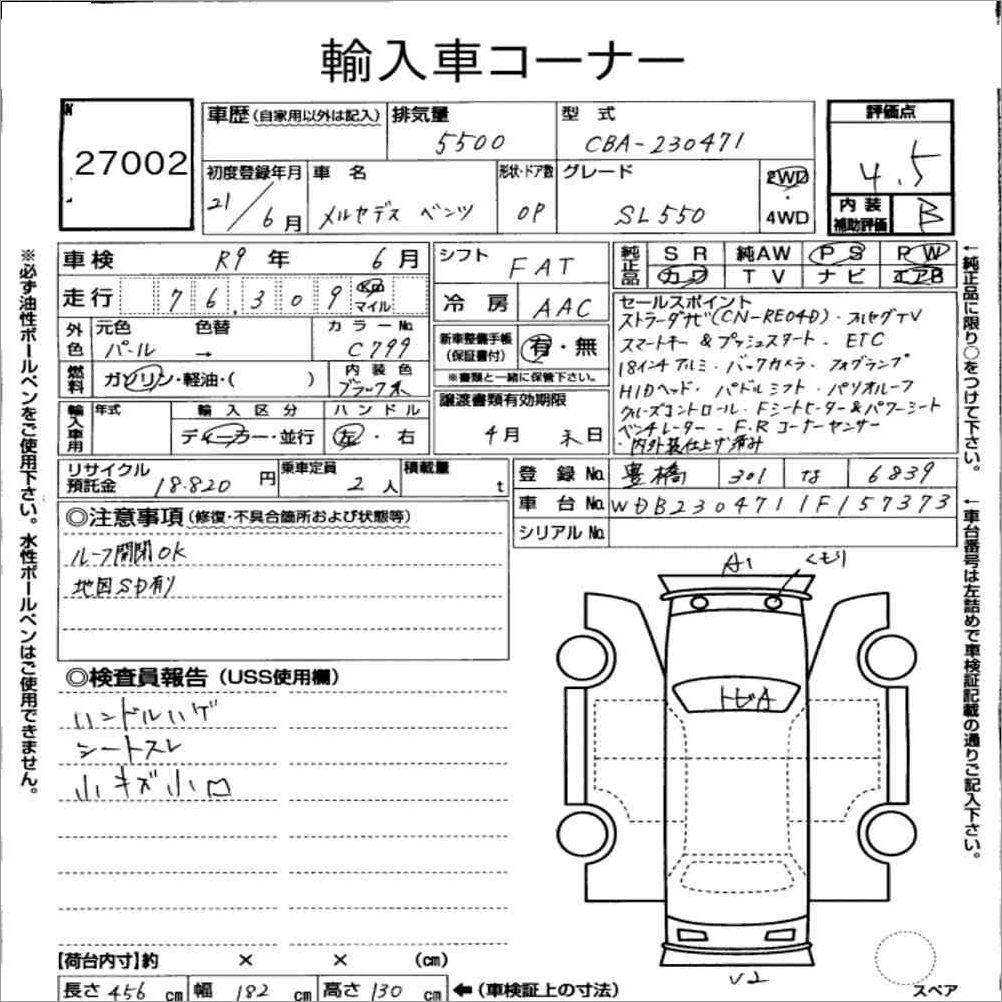 輸入車コーナー
27002
車歴 (自家用以外は記入) 排気量 5500 型式 CBA-230471 評価点 4.5
初度登録年月 21/6月 車名 メルセデス ベンツ 形状・ドア数 OP グレード SL550 2WD・4WD
内装補助評価 B
車検 R9年 6月 シフト FAT 純正品 SR 純AW PS PW
走行 76,309 キロ マイル 冷房 AAC カワ TV ナビ エアB
外色 元色 パール 色替 → カラーNo. C799
新車整備手帳(保証書付) 有・無
※書類と一緒に保管下さい。
燃料 ガソリン・軽油・( ) 内装色 ブラック本
譲渡書類有効期限 4月 末日
輸入車用 年式 輸入区分 ディーラー・並行 ハンドル 左・右
セールスポイント
ストラーダナビ(CN-RE04D)・フルセグTV
スマートキー&プッシュスタート・ETC
18インチアルミ・バックカメラ・フォグランプ
HIDヘッド・パドルシフト・パノラマルーフ
クルーズコントロール・Fシートヒーター&パワーシート
ベンチレーター・F.Rコーナーセンサー
・内外装仕上げ済み
リサイクル預託金 18.820円 乗車定員 2人 積載量 t
登録No. 豊橋 301 な 6839
車台No. WDB2304711F157373
シリアルNo.
◎注意事項(修復・不具合箇所および状態等)
ルーフ開閉OK
地図SD有り
◎検査員報告(USS使用欄)
ハンドルハゲ
シートスレ
小キズ小凹
A1
くもり
トビA
V2
スペア
【荷台内寸】約 × × (cm)
長さ 456 cm 幅 182 cm 高さ 130 cm ←(車検証上の寸法)
※必ず油性ボールペンをご使用下さい。水性ボールペンはご使用できません。
←純正品に限り○をつけて下さい。
←車台番号は左詰めで車検証記載の通りご記入下さい。